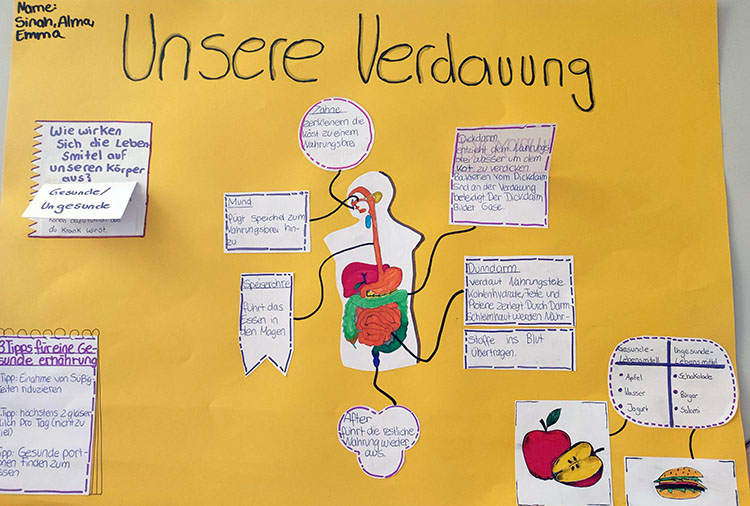 Name:
Sinah, Alma,
Emma
Unsere Verdauung
Wie wirken
sich die Leben
smittel auf
unseren Körper
aus?
Gesunde/
Ungesunde
du Krank wirst.
Zähne
zerkleinern die
Kost zu einem
Nahrungsbrei
Mund
fügt Speichel zum
Nahrungsbrei hin-
zu
Speiseröhre
führt das
Essen in
den Magen
Dickdarm
entzieht dem Nahrungs
brei Wasser um den
Kot zu verdicken
Bakterien vom Dickdarm
sind an der Verdauung
beteiligt. Der Dickdarm
bildet Gase.
Dünndarm
verdaut Nahrungsteile
Kohlenhydrate, Fette und
Proteine zerlegt. Durch Darm
schleimhaut werden Nähr-
Stoffe ins Blut
Übertragen.
After
führt die restliche
Nahrung wieder
aus.
3 Tipps für eine Ge
sunde ernährung
Tipp: Einahme von Süßig
eiten riduzieren
Tipp: höchstens 2 gläser
ilch pro Tag (nicht zu
iel)
Tipp: Gesunde port
onen finden zum
essen
Gesunde-
Lebensmittel
Apfel
Wasser
Jogurt
Ungesunde-
Lebensmittel
Schokolade
Bürger
Salami